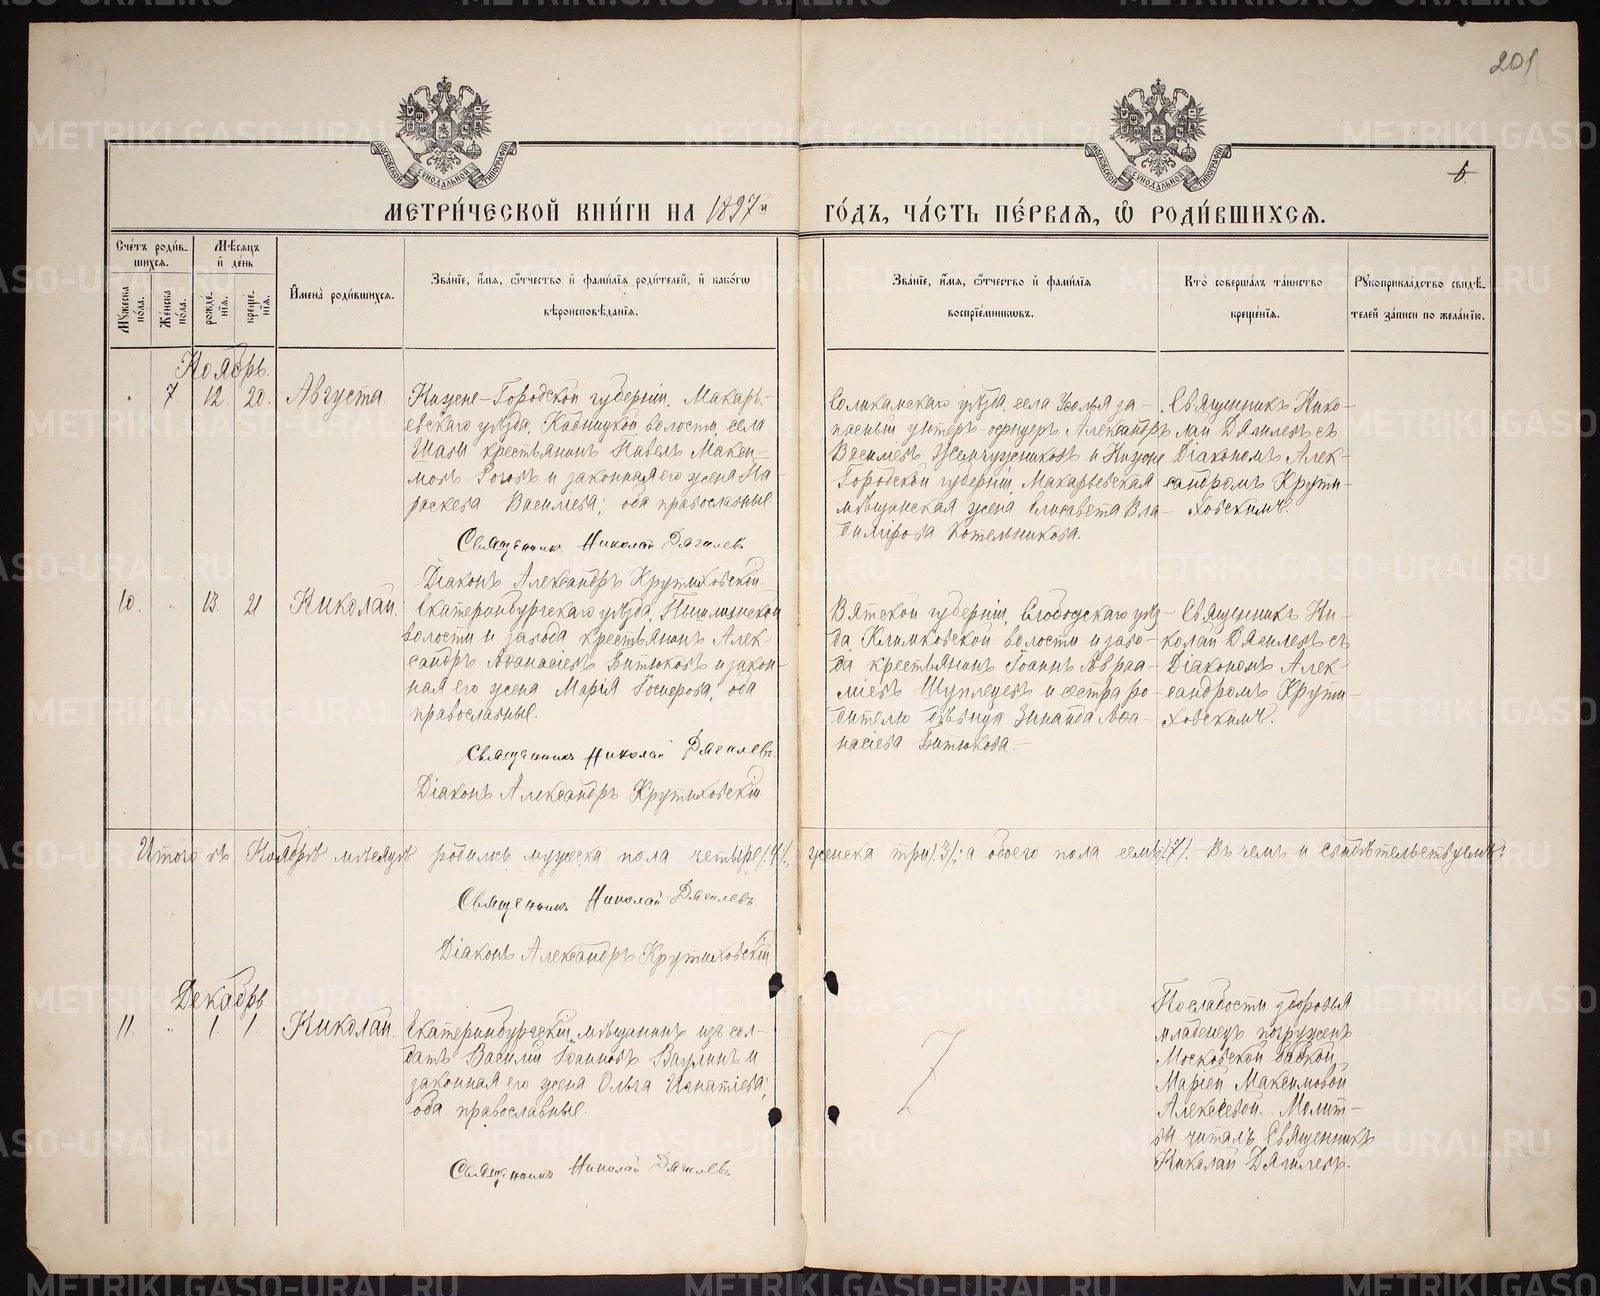 201
6.
МЕТРИ́ЧЕСКОЙ КНИ́ГИ НА 1897й ГО́ДЪ, ЧА́СТЬ ПЕ́РВАЯ, Ѡ҆ РОДИ́ВШИХСЯ.
МОСКОВСКОЙ СѴНОДАЛЬНОЙ ТИПОГРАФІИ
МОСКОВСКОЙ СѴНОДАЛЬНОЙ ТИПОГРАФІИ
Сче́тъ роди́в-
шихся.
Мѣ́сяцъ
и҆ де́нь
Му́жеска по́ла.
Же́нска по́ла.
рожде́-
нїя.
креще́-
нїя.
И҆мена̀ роди́вшихся.
Зва́нїе, и҆́мя, ѻ҆́тчество и҆ фами́лїя роди́телей, и҆ како́гѡ
вѣроисповѣ́данїя.
Зва́нїе, и҆́мя, ѻ҆́тчество и҆ фами́лїя
воспрїе́мникѡвъ.
Кто̀ соверша́лъ та́инство
креще́нїя.
Рꙋкоприкла́дство свидѣ́-
телей за́писи по жела́нїю.
Ноябрь.
" 7 12. 20. Августа
Нижне-Городской губерніи, Макарь-
евскаго уѣзда, волости, села
крестьянинъ Павелъ Макси-
мовъ Роговъ и законная его жена Па-
раскева Васильева; оба православные.
Священникъ Николай Дягилевъ
Діаконъ Александръ Крутиховскій
Соликамскаго уѣзда, села Усолья за-
пасный унтеръ-офицеръ Александръ
Васильевъ Жемчужниковъ и Нижне
Городской губерніи, Макарьевская
мѣщанская жена Елисавета Вла-
димірова Котельникова.
Священникъ Нико-
лай Дягилевъ съ
Діакономъ Алек-
сандромъ Крути-
ховскимъ.
10. " 13. 21 Николай.
Екатеринбургскаго уѣзда, Пышминской
волости и завода крестьянинъ Алек-
сандръ Аѳанасіевъ Битюковъ и закон-
ная его жена Марія оба
православные.
Священникъ Николай Дягилевъ.
Діаконъ Александръ Крутиховскій
Вятской губерніи, Слободскаго уѣз-
да, Климковской волости и заво-
да крестьянинъ Іоаннъ Авраа-
міевъ Шуплецовъ и сестра ро-
дителю дѣвица Зинаида Аѳа-
насіева Битюкова.
Священникъ Ни-
колай Дягилевъ съ
Діакономъ Алек-
сандромъ Крути-
ховскимъ.
Итого въ Ноябрѣ мѣсяцѣ родилось мужеска пола четыре /.4/., женска три /.3/.; а обоего пола семь /.7/. - Въ чемъ и свидѣтельствуемъ:
Священникъ Николай Дягилевъ.
Діаконъ Александръ Крутиховскій
Декабрь.
11. " 1 1. Николай.
Екатеринбургскій мѣщанинъ изъ сол-
датъ Василій Іоанновъ Ваулинъ и
законная его жена Ольга Игнатіева;
оба православные.
Священникъ Николай Дягилевъ
По слабости здоровья
младенецъ погруженъ
Московской бабкой
Маріей Максимовой
Алексѣевой. Молит-
вы читалъ Священникъ
Николай Дягилевъ.
METRIKI.GASO-URAL.RU